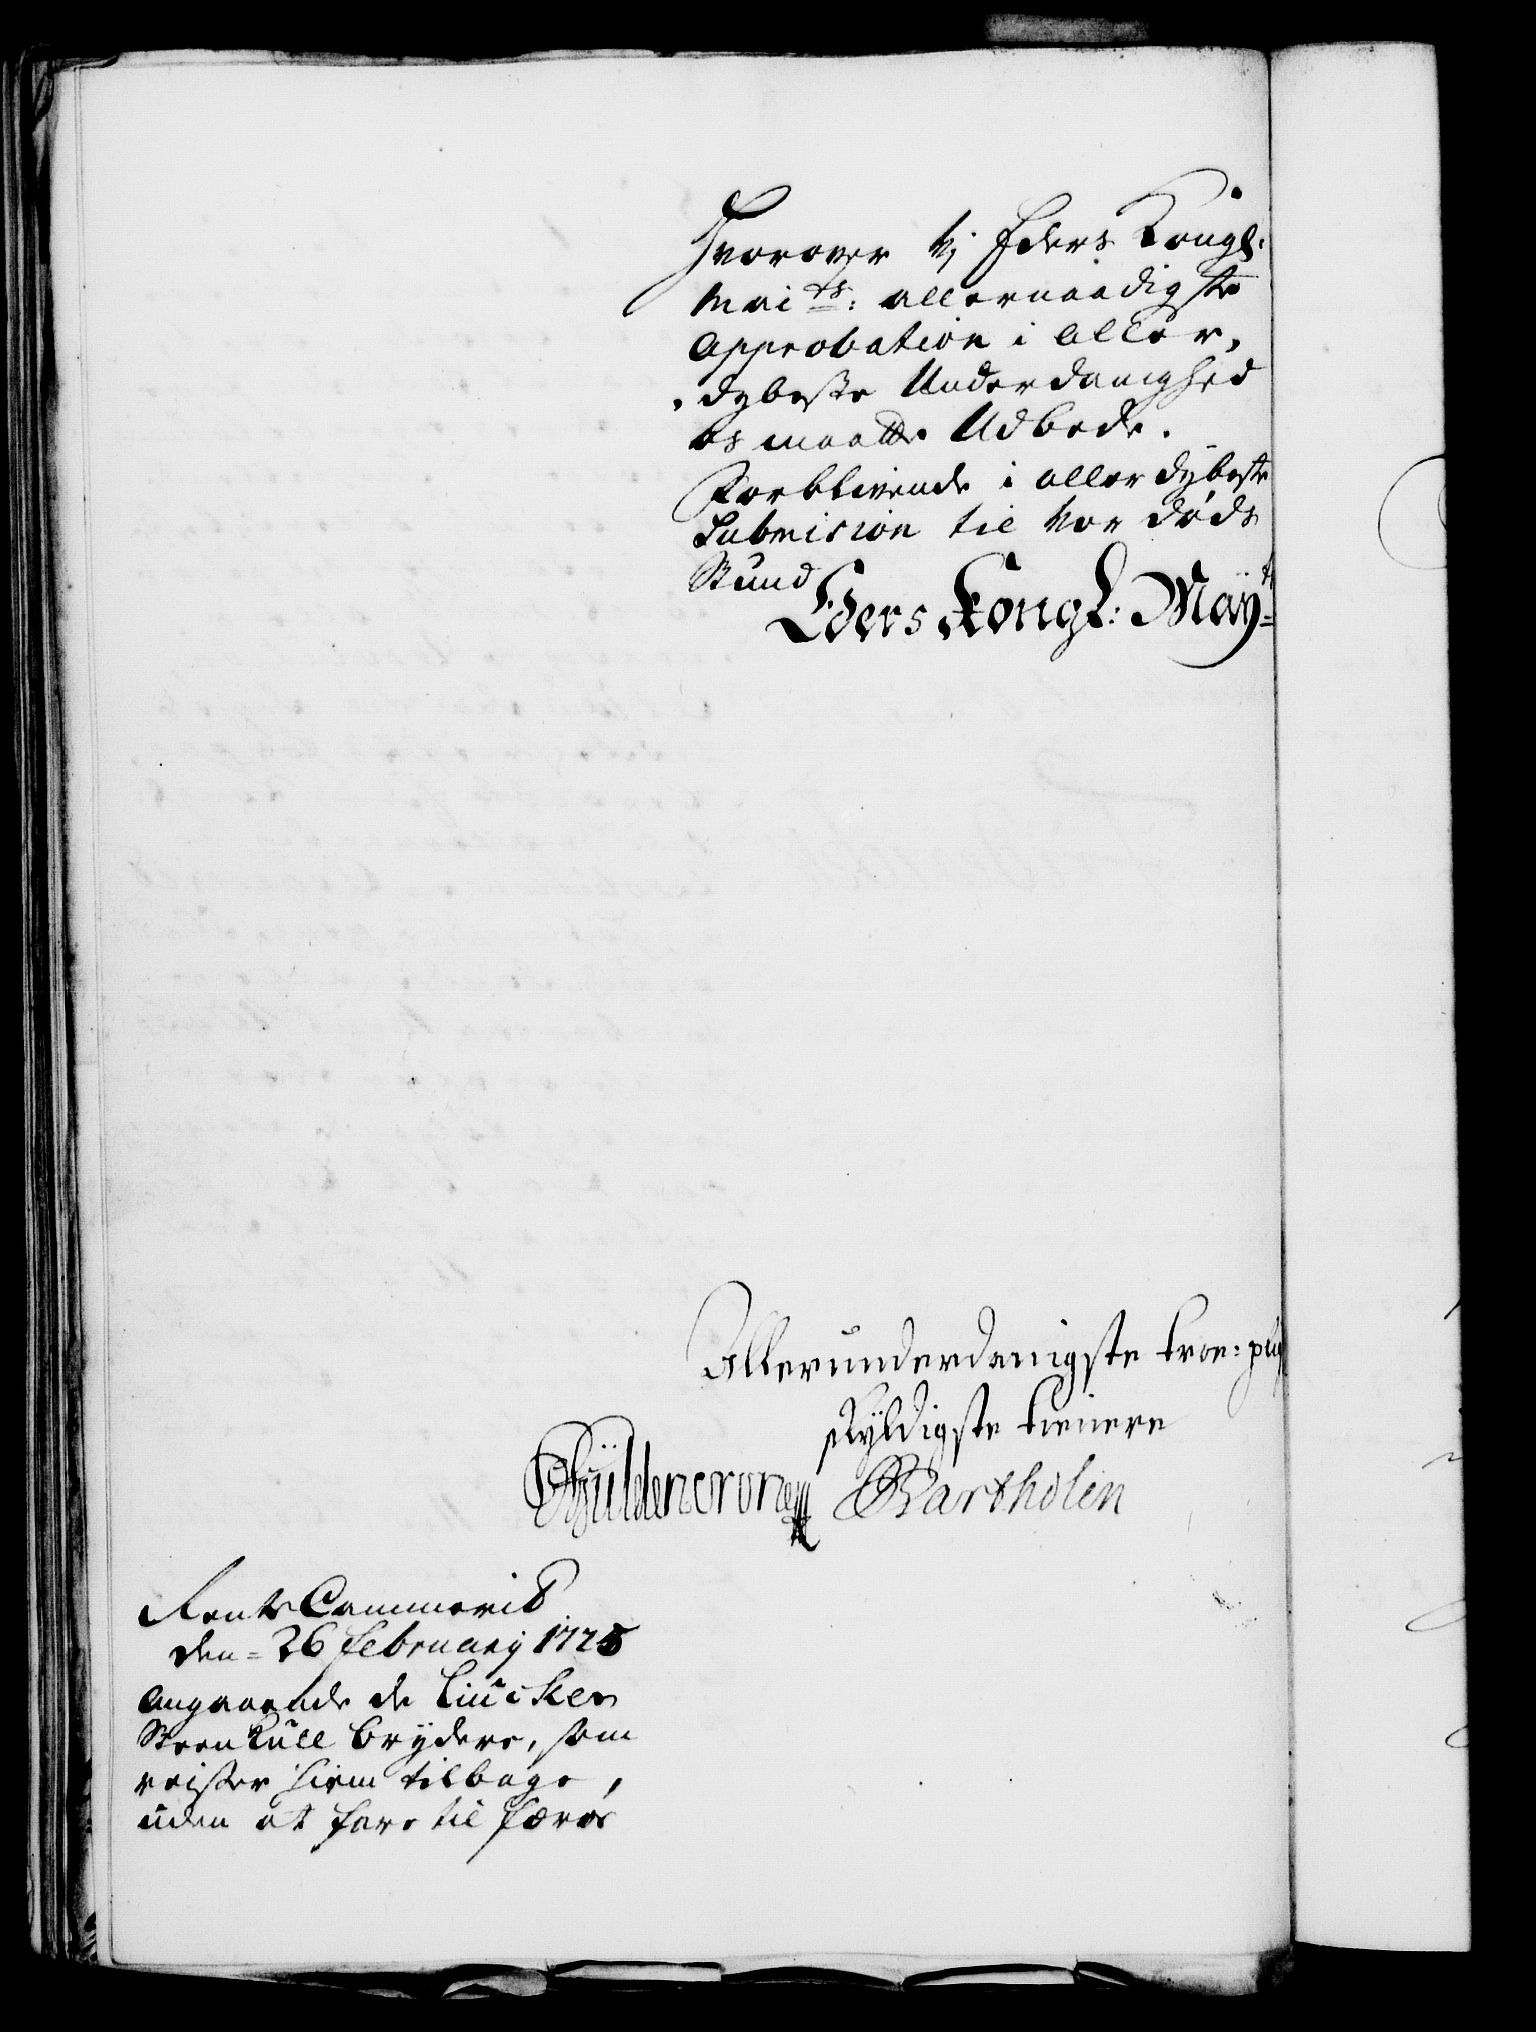 Hvorover Vj Eders Kongl.
Mai ts: allernaadigste
Approbation i aller,
, dybeste Underdanighed
os maatte Udbede.
Forblivende i allerdybeste
Submision til Vor Døds
Stund
Eders Kongl: Maÿts
Allerunderdanigste troe: plig
skyldigste tienere
Gÿldencrone CBartholin
RenteCammerit
den = 26 February 1725
Angaaende de Liucker
Steenkull brydere, som
reiser hiem tilbage,
uden at fare til Færøe